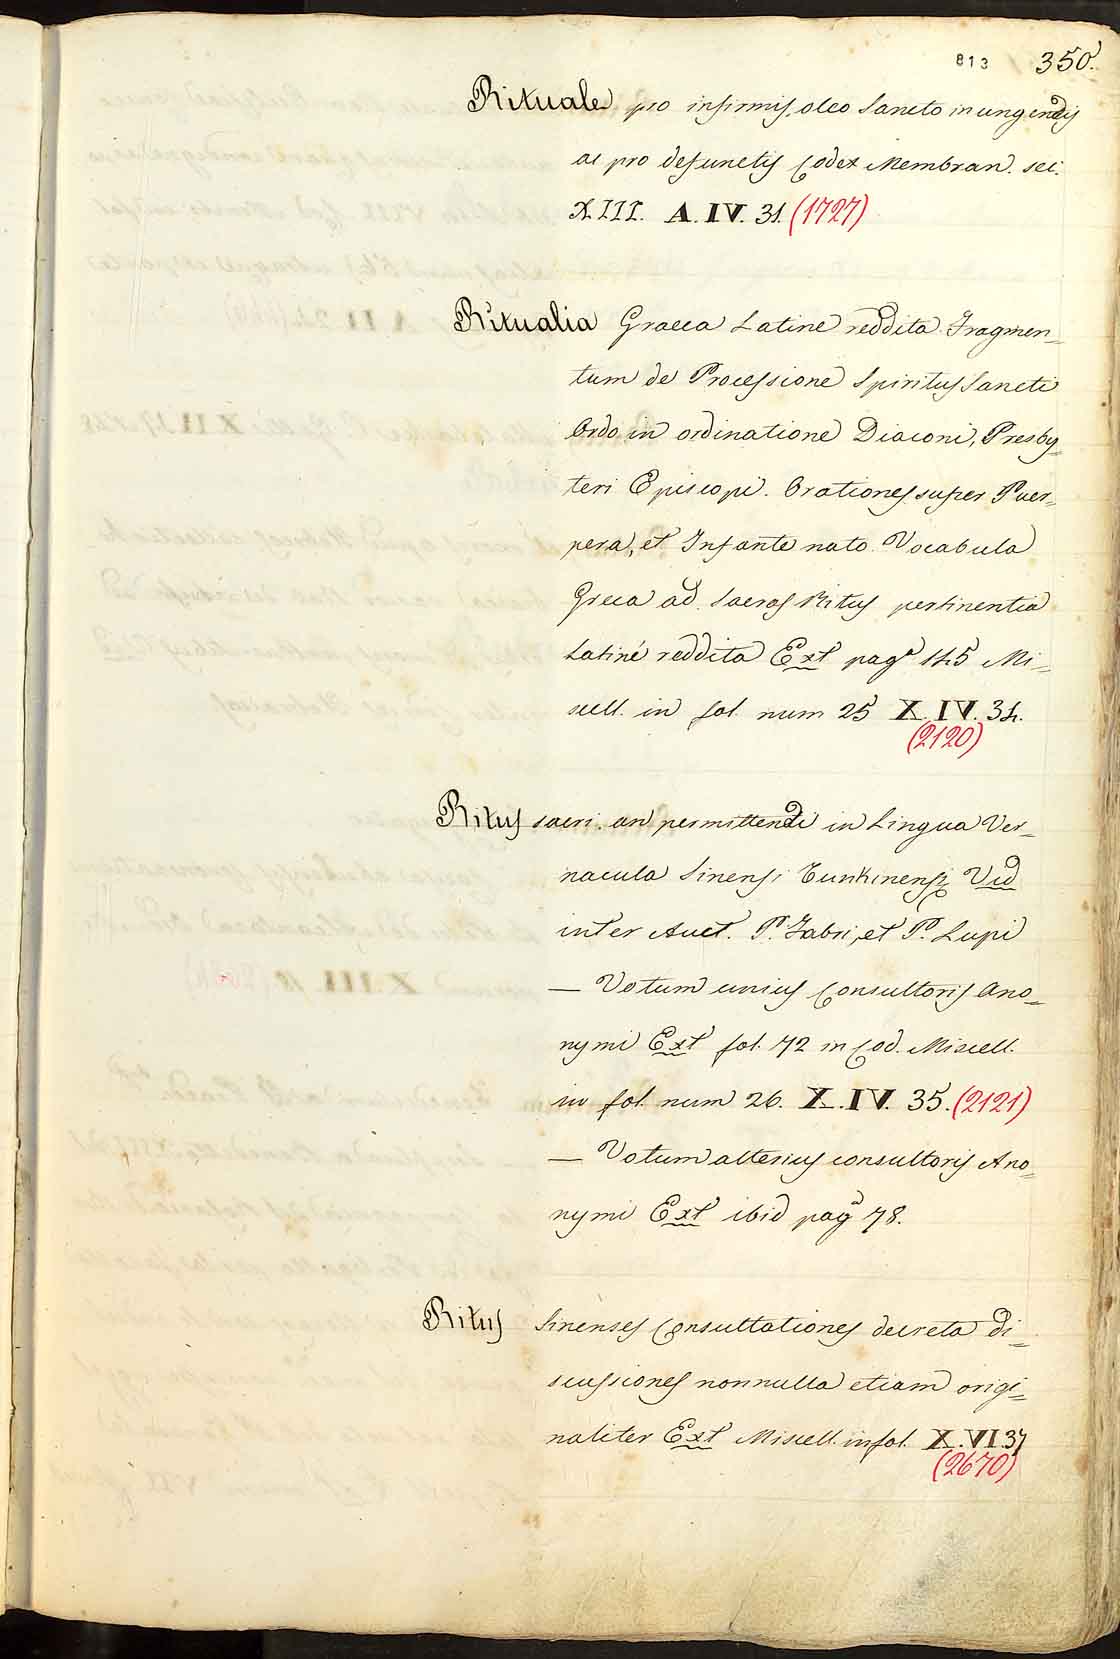 813 350.
Rituale pro infirmis, oleo Sancto inungendis
ac pro defunctis Codex Membran. sec.
XIII. A. IV. 31. (1727)
Ritualia Graeca Latine reddita. Fragmen=
tum de Processione Spiritus Sancti
Ordo in ordinatione Diaconi, Presby=
teri Episcopi. Orationes super Puer=
pera, et Infante nato. Vocabula
Greca ad Sacros Ritus pertinentia
Latine reddita Ext pagª 145 Mi=
scell. in fol. num 25 X. IV. 34.
(2120)
Ritus sacri. an permittendi in Lingua Ver=
nacula Sinensi Tunkinensi, Vid
inter Auct. P. Fabri, et P. Lupi
— Votum unius Consultoris Ano=
nymi Ext fol. 72 in Cod. Miscell.
in fol. num 26. X. IV. 35. (2121)
— Votum alterius consultoris Ano=
nymi Ext ibid pagª 78.
Ritus Sinenses Consultationes decreta di=
scussiones nonnulla etiam origi=
naliter Ext Miscell. in fol. X. VI 37
(2670)